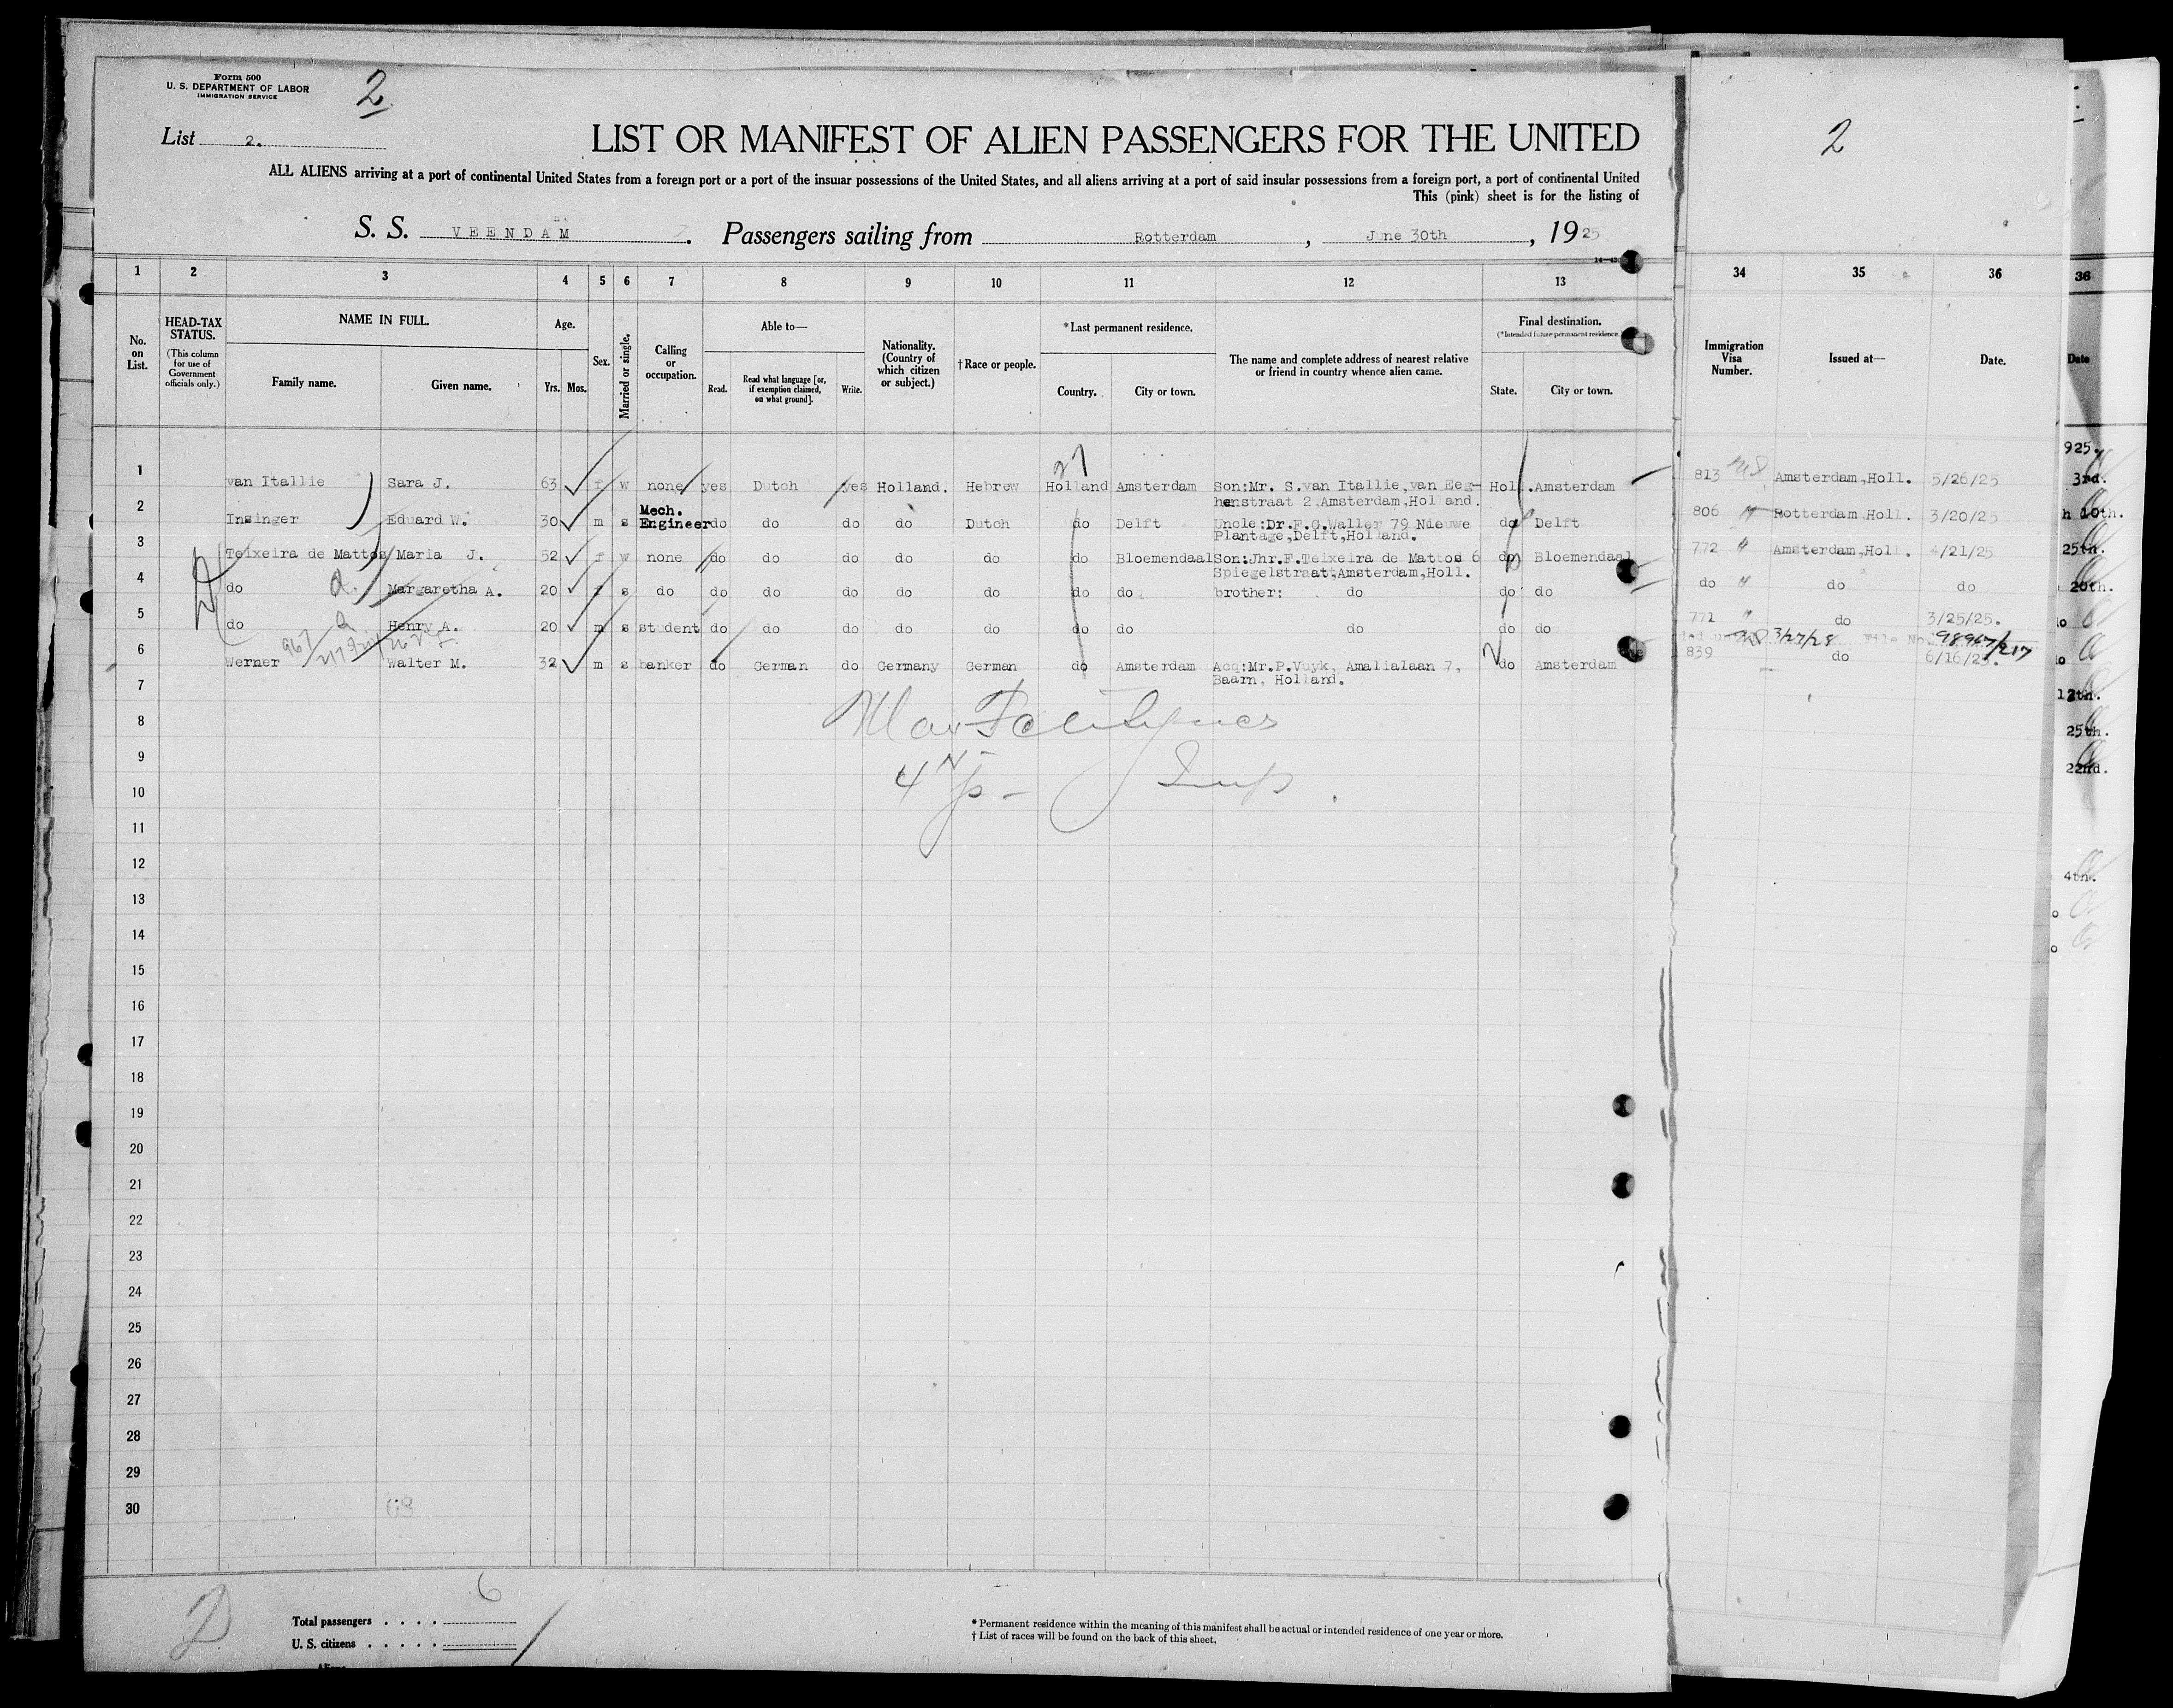 Form 500
U. S. DEPARTMENT OF LABOR
IMMIGRATION SERVICE
2
2
List 2.
LIST OR MANIFEST OF ALIEN PASSENGERS FOR THE UNITED
ALL ALIENS arriving at a port of continental United States from a foreign port or a port of the insular possessions of the United States, and all aliens arriving at a port of said insular possessions from a foreign port, a port of continental United
This (pink) sheet is for the listing of
S. S. VEENDAM. Passengers sailing from Rotterdam, June 30th, 1925
1 2 3 4 5 6 7 8 9 10 11 12 13 34 35 36 36
No. on List.
HEAD-TAX STATUS.
(This column for use of Government officials only.)
NAME IN FULL.
Family name. Given name.
Age.
Yrs. Mos.
Sex.
Married or single.
Calling or occupation.
Able to—
Read. Read what language [or, if exemption claimed, on what ground]. Write.
Nationality. (Country of which citizen or subject.)
†Race or people.
*Last permanent residence.
Country. City or town.
The name and complete address of nearest relative or friend in country whence alien came.
Final destination.
(*Intended future permanent residence.)
State. City or town.
Immigration Visa Number.
Issued at—
Date.
Date
1 van Itallie Sara J. 63 f w none yes Dutch yes Holland. Hebrew Holland Amsterdam Son:Mr. S.van Itallie,van Eeg- Holl.Amsterdam 813 Amsterdam,Holl. 5/26/25
henstraat 2,Amsterdam,Hol and.
2 Insinger Eduard W. 30 m s Mech. Engineer do do do do Dutch do Delft Uncle:Dr.F.G.Waller 79 Nieuwe do Delft 806 Rotterdam Holl. 3/20/25
Plantage,Delft,Holland.
3 Teixeira de Mattos Maria J. 52 f w none do do do do do do Bloemendaal Son:Jhr.F.Teixeira de Mattos 6 do Bloemendaal 772 Amsterdam,Holl. 4/21/25
Spiegelstraat,Amsterdam,Holl.
4 do Margaretha A. 20 f s do do do do do do do do brother: do do do do do do
5 do Henry A. 20 m s student do do do do do do do do do do 771 do 3/25/25.
3/27/28 File No. 98967/217
6 Werner Walter M. 32 m s banker do German do Germany German do Amsterdam Acq:Mr.P.Vuyk, Amalialaan 7, do Amsterdam 839 do 6/16/25.
Baarn, Holland.
7
8
9
10
11
12
13
14
15
16
17
18
19
20
21
22
23
24
25
26
27
28
29
30
925.
3rd.
h 10th.
25th.
20th.
12th.
25th.
22nd.
4th.
6
Total passengers . . . .
U. S. citizens . . . . .
* Permanent residence within the meaning of this manifest shall be actual or intended residence of one year or more.
† List of races will be found on the back of this sheet.